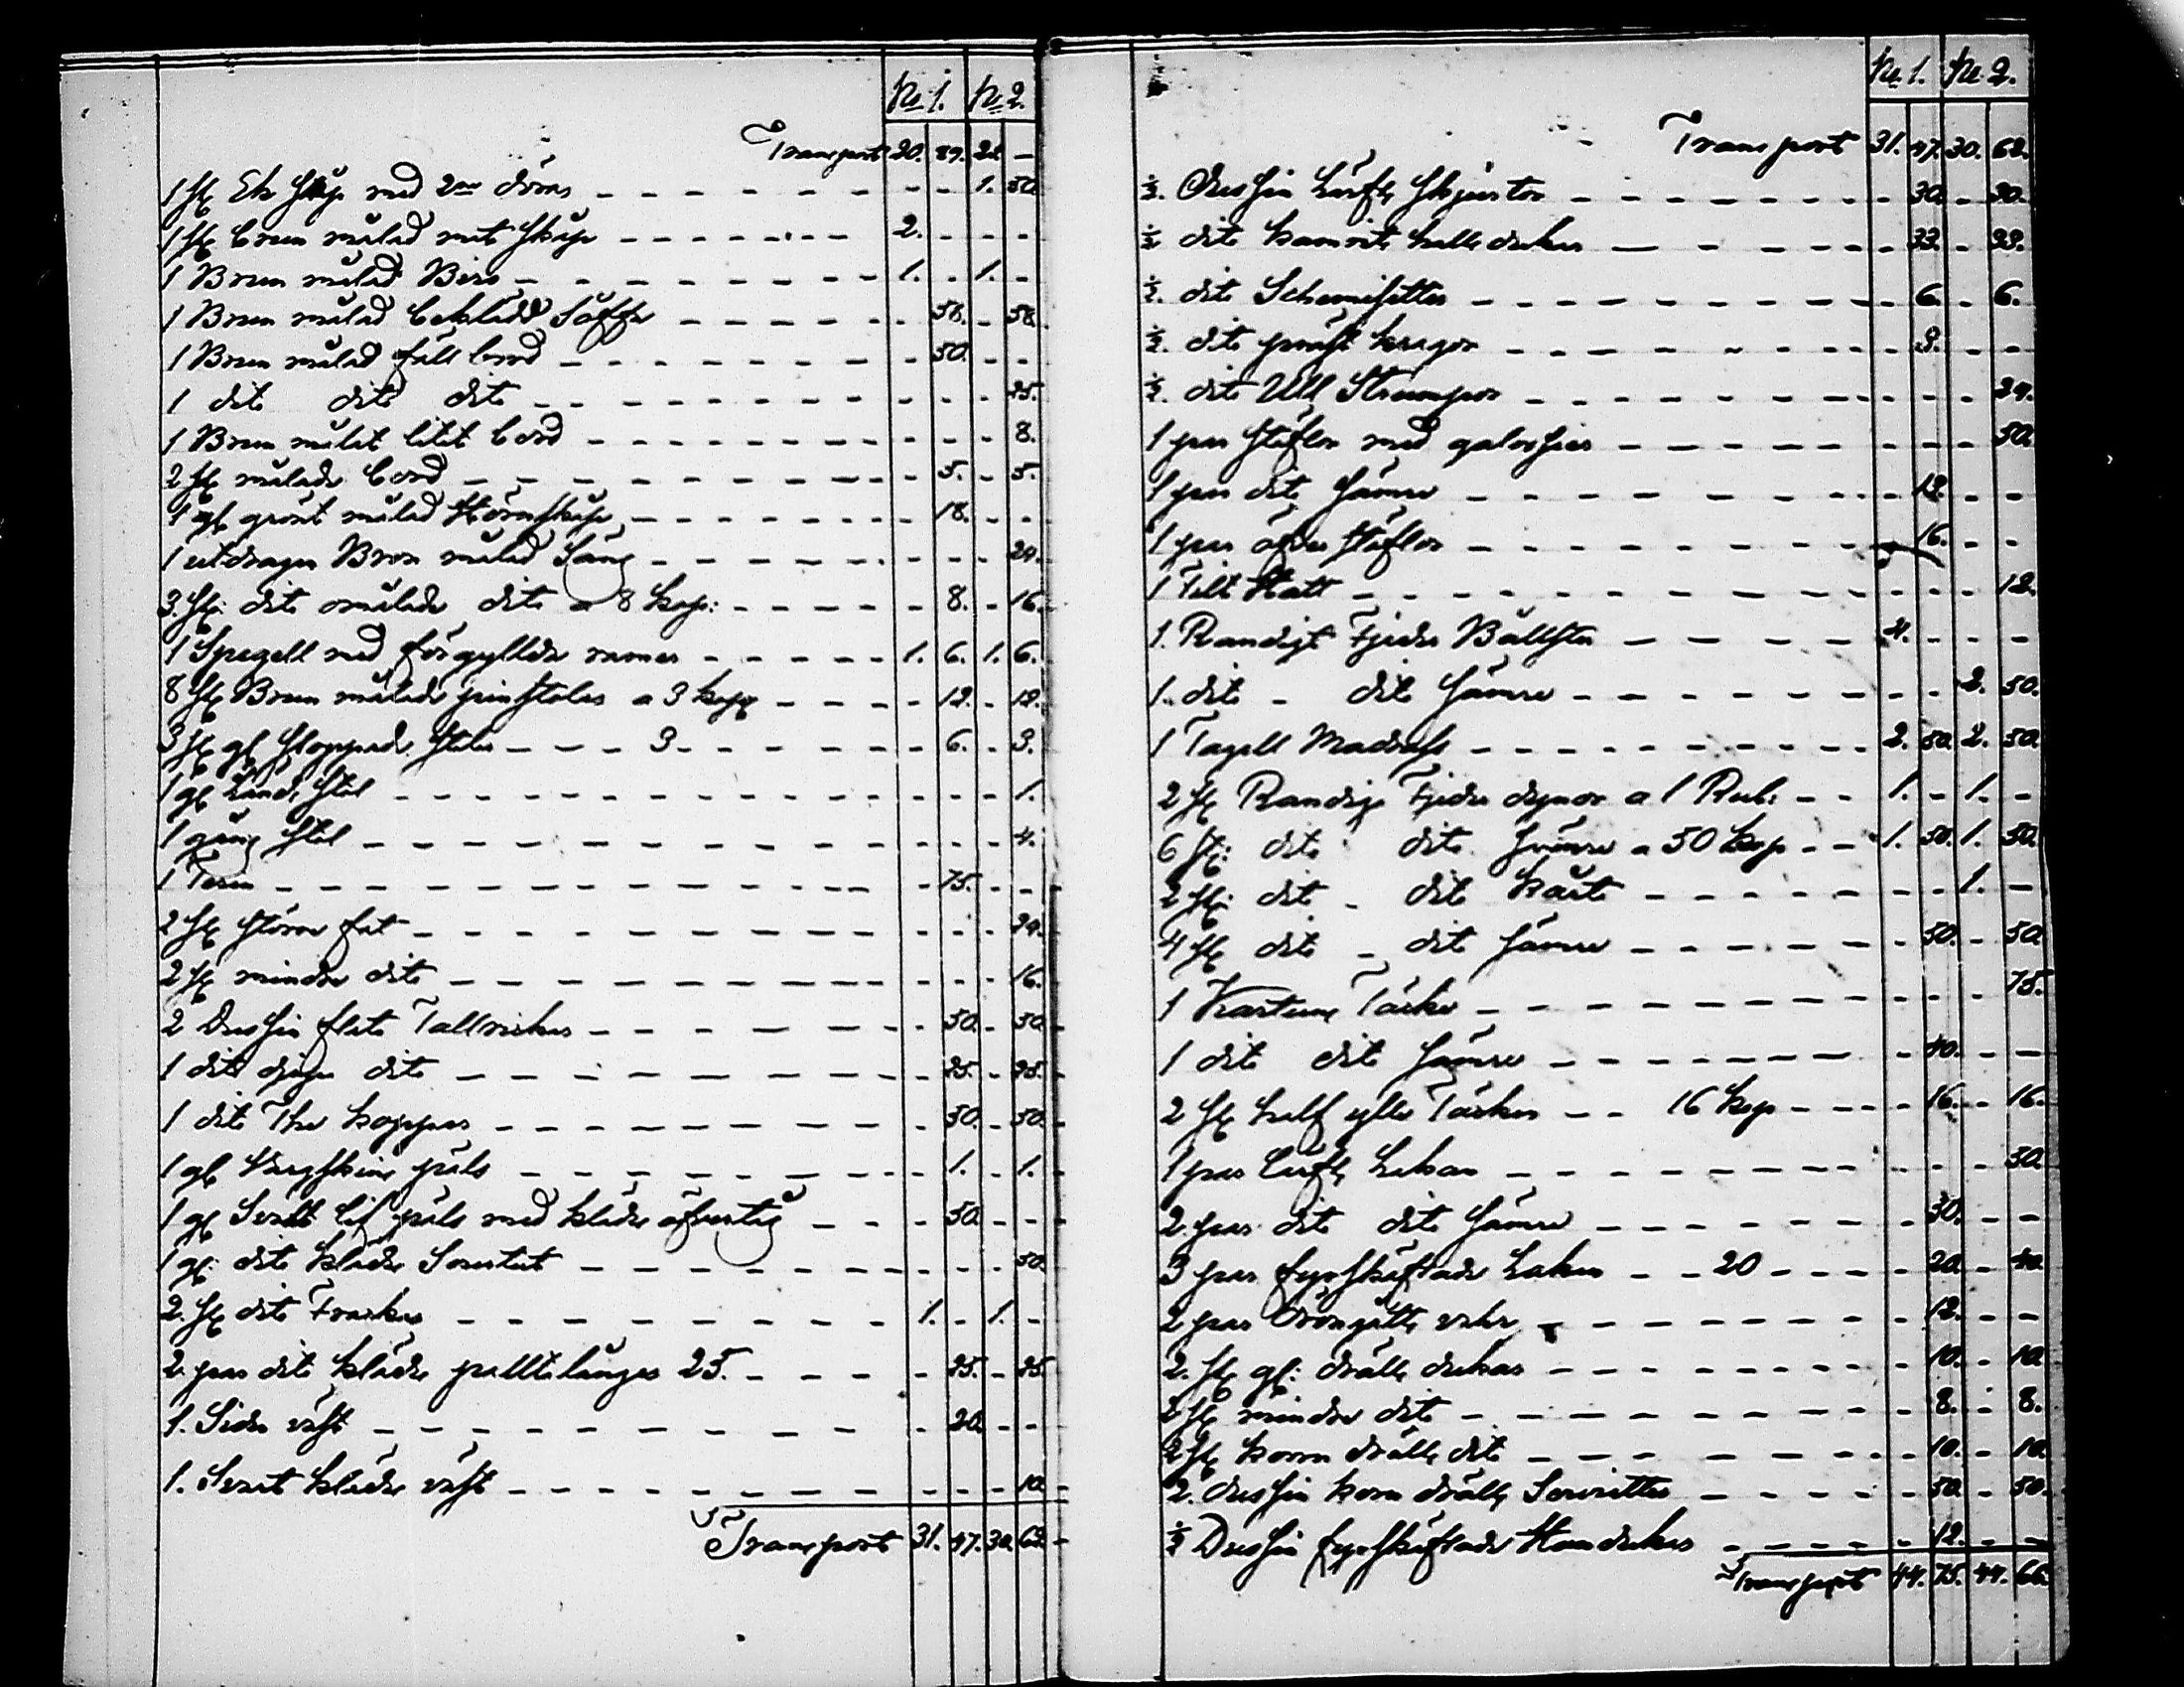 No 1. No 2.
Transport 20. 89. 21 –
1 st Ek skåp med 2ne dörar – 1. 50.
1 st brun målad mat skåp 2. – – –
1 Brun målad Biro 1. – 1. –
1 Brun målad beklädd Säffa – 58. – 58.
1 Brun målad fäll bord – 50. – –
1 dit dito dito – – – 25.
1 Brun målat litet bord – – – 8.
2 st målade bord – 5. – 5.
1 gl grönt målad Hörnskåp – 18. – –
1 utdragen Brun målad Säng – – – 24.
3. st: dito omålade dito a 8 kop: – 8. – 16.
1 Spegell med förgyllda ramar 1. 6. 1. 6.
8 st Brun målade pinstolar a 3 kop – 12. – 12.
3 st gl stoppade stolar – 3 – 6. – 3.
1 gl Länd stol – – – 1.
1 gung stol – – – 4.
1 Terin – 75. – –
2 st större fat – – – 24.
2 st mindre dito – – – 16.
2 Dussin flata Tallrickar – 50. – 50.
1 dito djupa dito – 25. – 25.
1 dit The koppar – 50. – 50.
1 gl Vargskins päls – 1. – 1.
1 gl Svart lif päls med kläde öfvertig – 50. – –
1 gl: dito kläde Sourtut – – – 50.
2. st dito Frackar 1. – 1. –
2. par dit kläde palltelånger 25. – 25. – 25.
1. Siden väst – 20. – –
1. Svart kläde väst – – – 10.
Transport 31. 47. 30. 62.
No 1. No 2.
Transport 31. 47. 30. 62.
½. Dussin Lärfts skjortor – 30. – 30.
½ dito kamrits hallsdukar – 33. – 33.
½. dito Schemisetter – 6. – 6.
½. dito präst kragor – 3. – –
½. dito Ull Strumpor – – – 24.
1 par stöflor med galossier – – – 50.
1 par dito sämre – 12. – –
1 par öfver stöflor – 16. – –
1 Filt Hatt – – – 12.
1. Randigt Fjeder Bållster 4. – – –
1. dito – dit sämre – – 2. 50.
1 Tagell Madrass 2. 50. 2. 50.
2 st Randiga Fjeder dynor a 1 Rub: 1. – 1. –
6 st: dito dito sämre a 50 kop 1. 50. 1. 50.
2 st: dit – dit korta – – 1. –
4 st dit – dit sämre – 50. – 50.
1 Kartuns Täcke – – – 75.
1 dit dit sämre – 40. – –
2 st half ylle Täcken – 16 kop – 16. – 16.
1 par Lärfts Lakan – – – 30.
2. par dit dito sämre – 30. – –
3 par fyrskäftade Lakan – 20 – 20. – 40.
2 par Örongåtts vahr – 12. – –
2. st gl: drälls dukar – 10. – 10.
2 st mindre dit – 8. – 8.
2 st korn drälls dit – 10. – 10.
2. dussin korn drälls Servietter – 50. – 50.
½ Dussin fyrskäftade Handukar – 12. – –
Transport 44. 75. 44. 66.